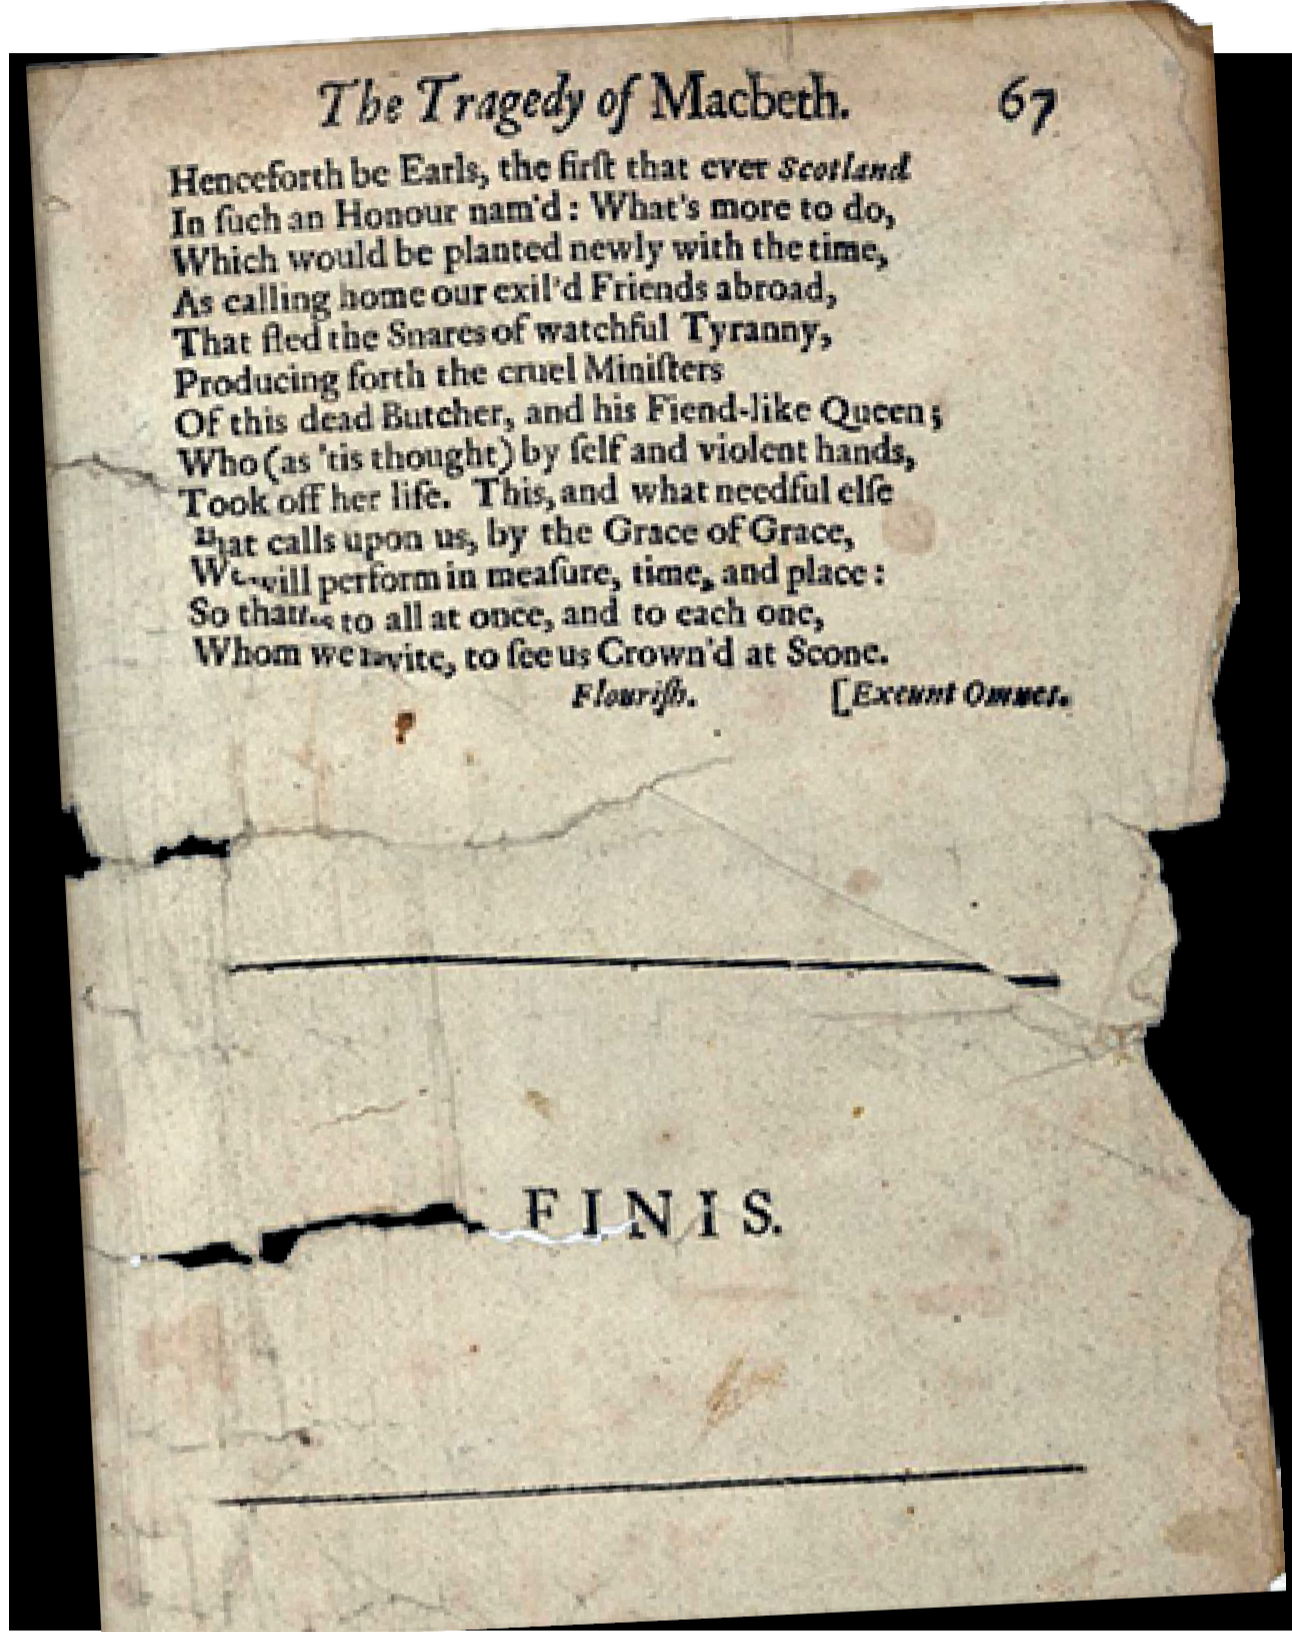 The Tragedy of Macbeth. 67
Henceforth be Earls, the firſt that ever Scotland
In ſuch an Honour nam'd: What's more to do,
Which would be planted newly with the time,
As calling home our exil'd Friends abroad,
That fled the Snares of watchful Tyranny,
Producing forth the cruel Miniſters
Of this dead Butcher, and his Fiend-like Queen;
Who (as 'tis thought) by ſelf and violent hands,
Took off her life. This, and what needful elſe
That calls upon us, by the Grace of Grace,
We will perform in meaſure, time, and place:
So thanks to all at once, and to each one,
Whom we invite, to ſee us Crown'd at Scone.
Flouriſh. [Exeunt Omnes.
FINIS.